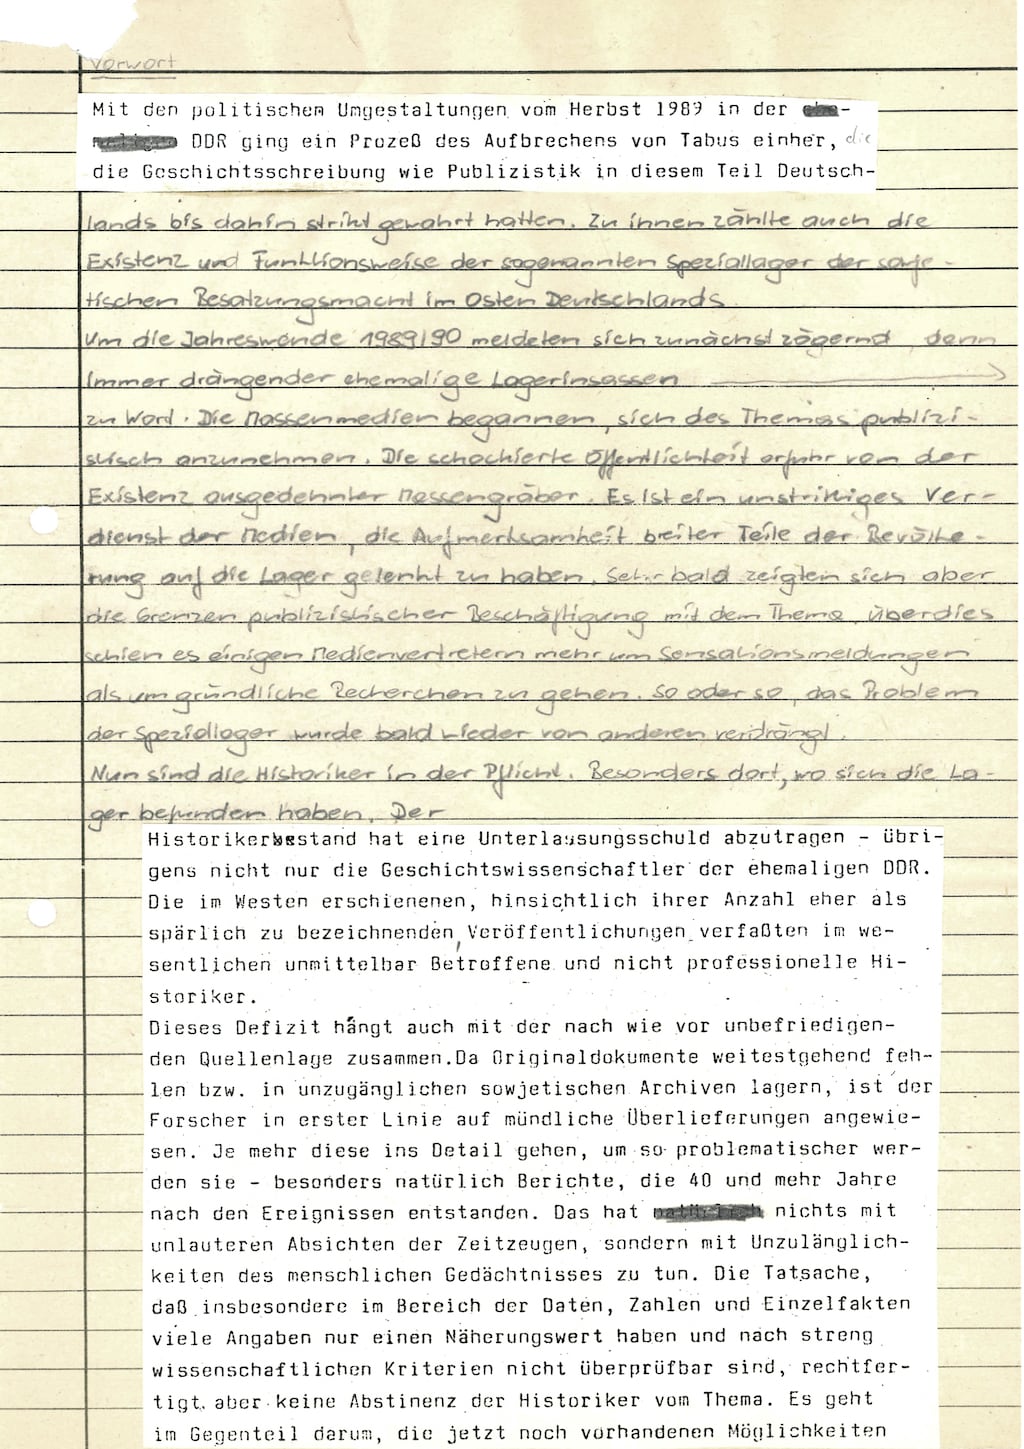 Vorwort
Mit den politischem Umgestaltungen vom Herbst 1989 in der ehe-
maligen DDR ging ein Prozeß des Aufbrechens von Tabus einher, die
die Geschichtsschreibung wie Publizistik in diesem Teil Deutsch-
lands bis dahin strikt gewahrt hatten. Zu ihnen zählte auch die
Existenz und Funktionsweise der sogenannten Speziallager der sowje-
tischen Besatzungsmacht im Osten Deutschlands.
Um die Jahreswende 1989/90 meldeten sich zunächst zögernd, dann
immer drängender ehemalige Lagerinsassen
zu Word. Die Massenmedien begannen, sich des Themas publizi-
stisch anzunehmen. Die schockierte Öffentlichkeit erfuhr von der
Existenz ausgedehnter Massengräber. Es ist ein unstrittiges Ver-
dienst der Medien, die Aufmerksamkeit breiter Teile der Bevölke-
rung auf die Lager gelenkt zu haben. Sehr bald zeigten sich aber
die Grenzen publizistischer Beschäftigung mit dem Thema, überdies
schien es einigen Medienvertretern mehr um Sensationsmeldungen
als um gründliche Recherchen zu gehen. So oder so, das Problem
der Speziallager wurde bald wieder von anderen verdrängt.
Nun sind die Historiker in der Pflicht. Besonders dort, wo sich die La-
ger befunden haben. Der
Historikerbestand hat eine Unterlassungsschuld abzutragen - übri-
gens nicht nur die Geschichtswissenschaftler der ehemaligen DDR.
Die im Westen erschienenen, hinsichtlich ihrer Anzahl eher als
spärlich zu bezeichnenden, Veröffentlichungen verfaßten im we-
sentlichen unmittelbar Betroffene und nicht professionelle Hi-
storiker.
Dieses Defizit hängt auch mit der nach wie vor unbefriedigen-
den Quellenlage zusammen.Da Originaldokumente weitestgehend feh-
len bzw. in unzugänglichen sowjetischen Archiven lagern, ist der
Forscher in erster Linie auf mündliche Überlieferungen angewie-
sen. Je mehr diese ins Detail gehen, um so problematischer wer-
den sie - besonders natürlich Berichte, die 40 und mehr Jahre
nach den Ereignissen entstanden. Das hat natürlich nichts mit
unlauteren Absichten der Zeitzeugen, sondern mit Unzulänglich-
keiten des menschlichen Gedächtnisses zu tun. Die Tatsache,
daß insbesondere im Bereich der Daten, Zahlen und Einzelfakten
viele Angaben nur einen Näherungswert haben und nach streng
wissenschaftlichen Kriterien nicht überprüfbar sind, rechtfer-
tigt aber keine Abstinenz der Historiker vom Thema. Es geht
im Gegenteil darum, die jetzt noch vorhandenen Möglichkeiten